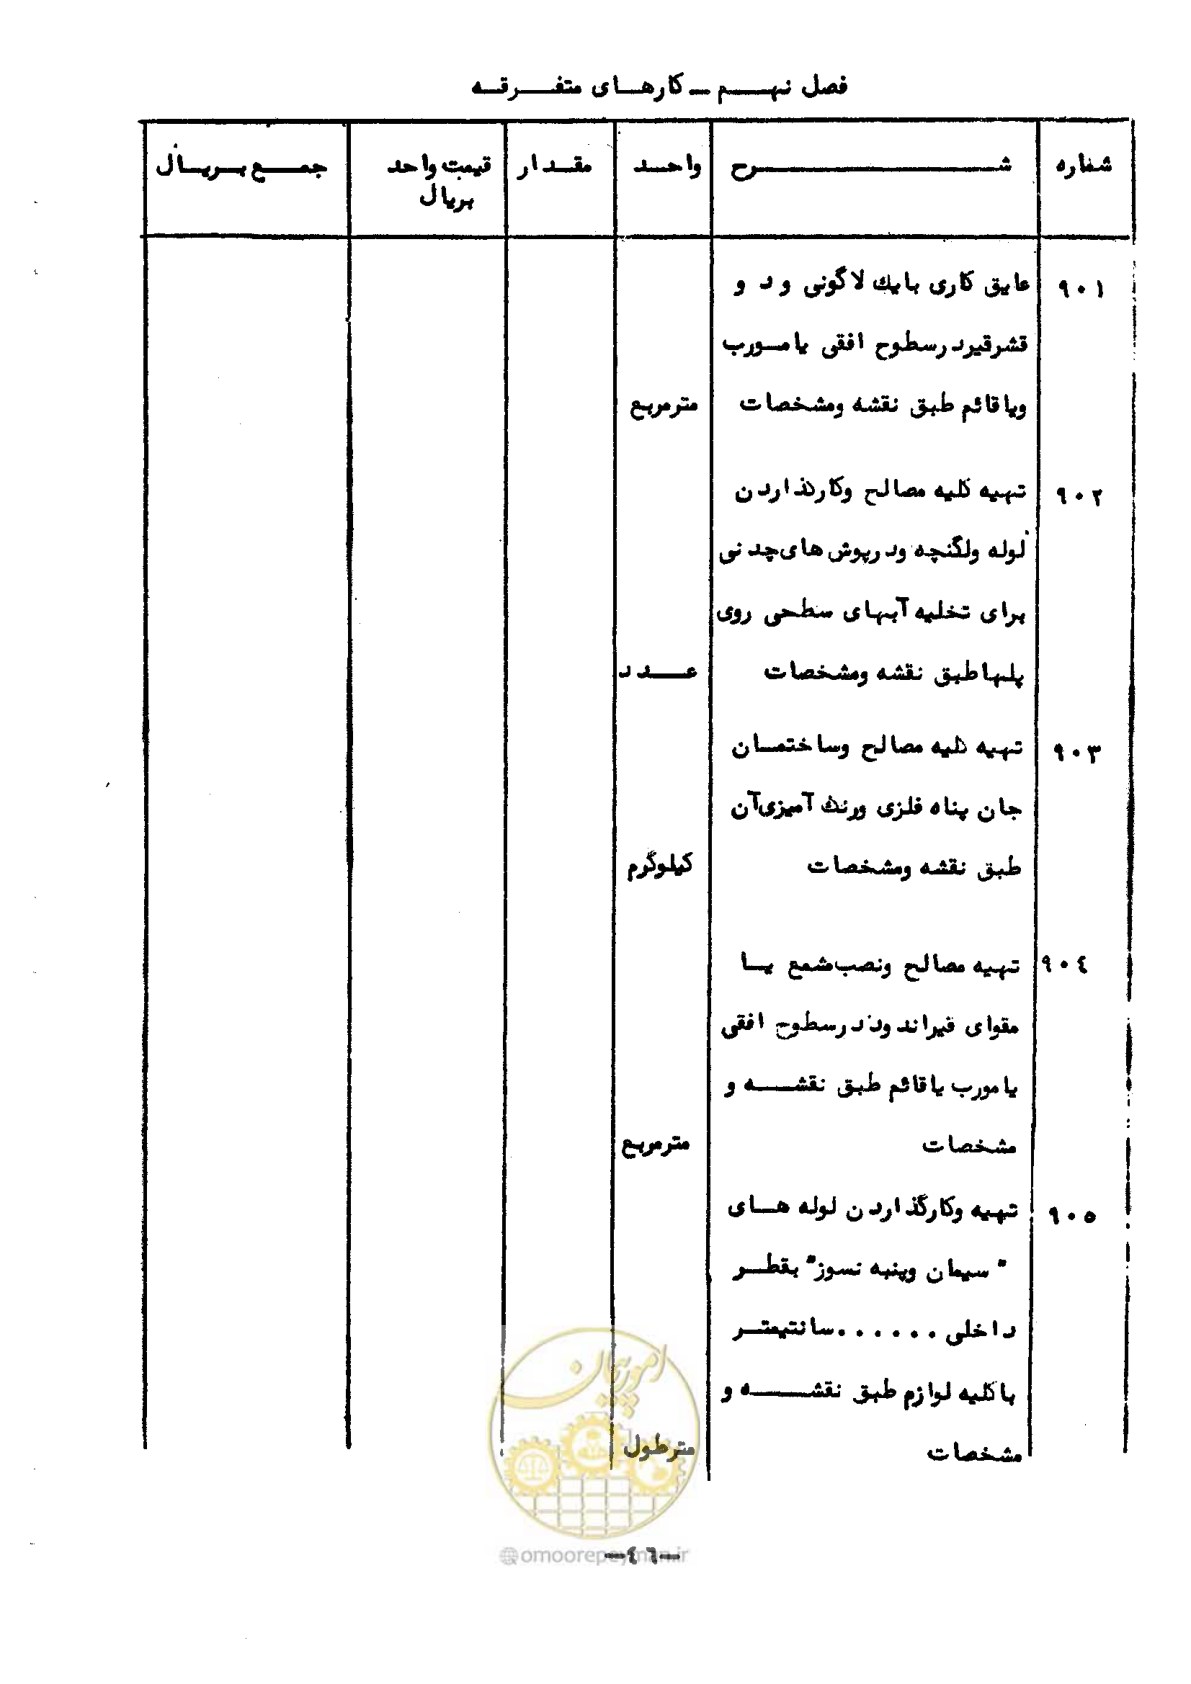 فصل نهم ـ کارهای متفرقه
شماره شرح واحد مقدار قیمت واحد بریال جمع بریال
۹۰۱ عایق کاری بایك لاگونی و دو
قشرقیردرسطوح افقی یامورب
ویاقائم طبق نقشه ومشخصات مترمربع
۹۰۲ تهیه کلیه مصالح وکارگذاردن
لوله ولگنچه ودرپوش های‌چدنی
برای تخلیه آبهای سطحی روی
پلهاطبق نقشه ومشخصات عدد
۹۰۳ تهیه کلیه مصالح وساختمان
جان پناه فلزی ورنگ آمیزی‌آن
طبق نقشه ومشخصات کیلوگرم
۹۰٤ تهیه مصالح ونصب‌شمع یا
مقوای قیراندوددرسطوح افقی
یامورب یاقائم طبق نقشه و
مشخصات مترمربع
۹۰۵ تهیه وکارگذاردن لوله های
" سیمان وپنبه نسوز" بقطر
داخلی ......سانتیمتر
باکلیه لوازم طبق نقشه و
مشخصات مترطول
امور پیمان
@omoorepeyman.ir
-٤٦-